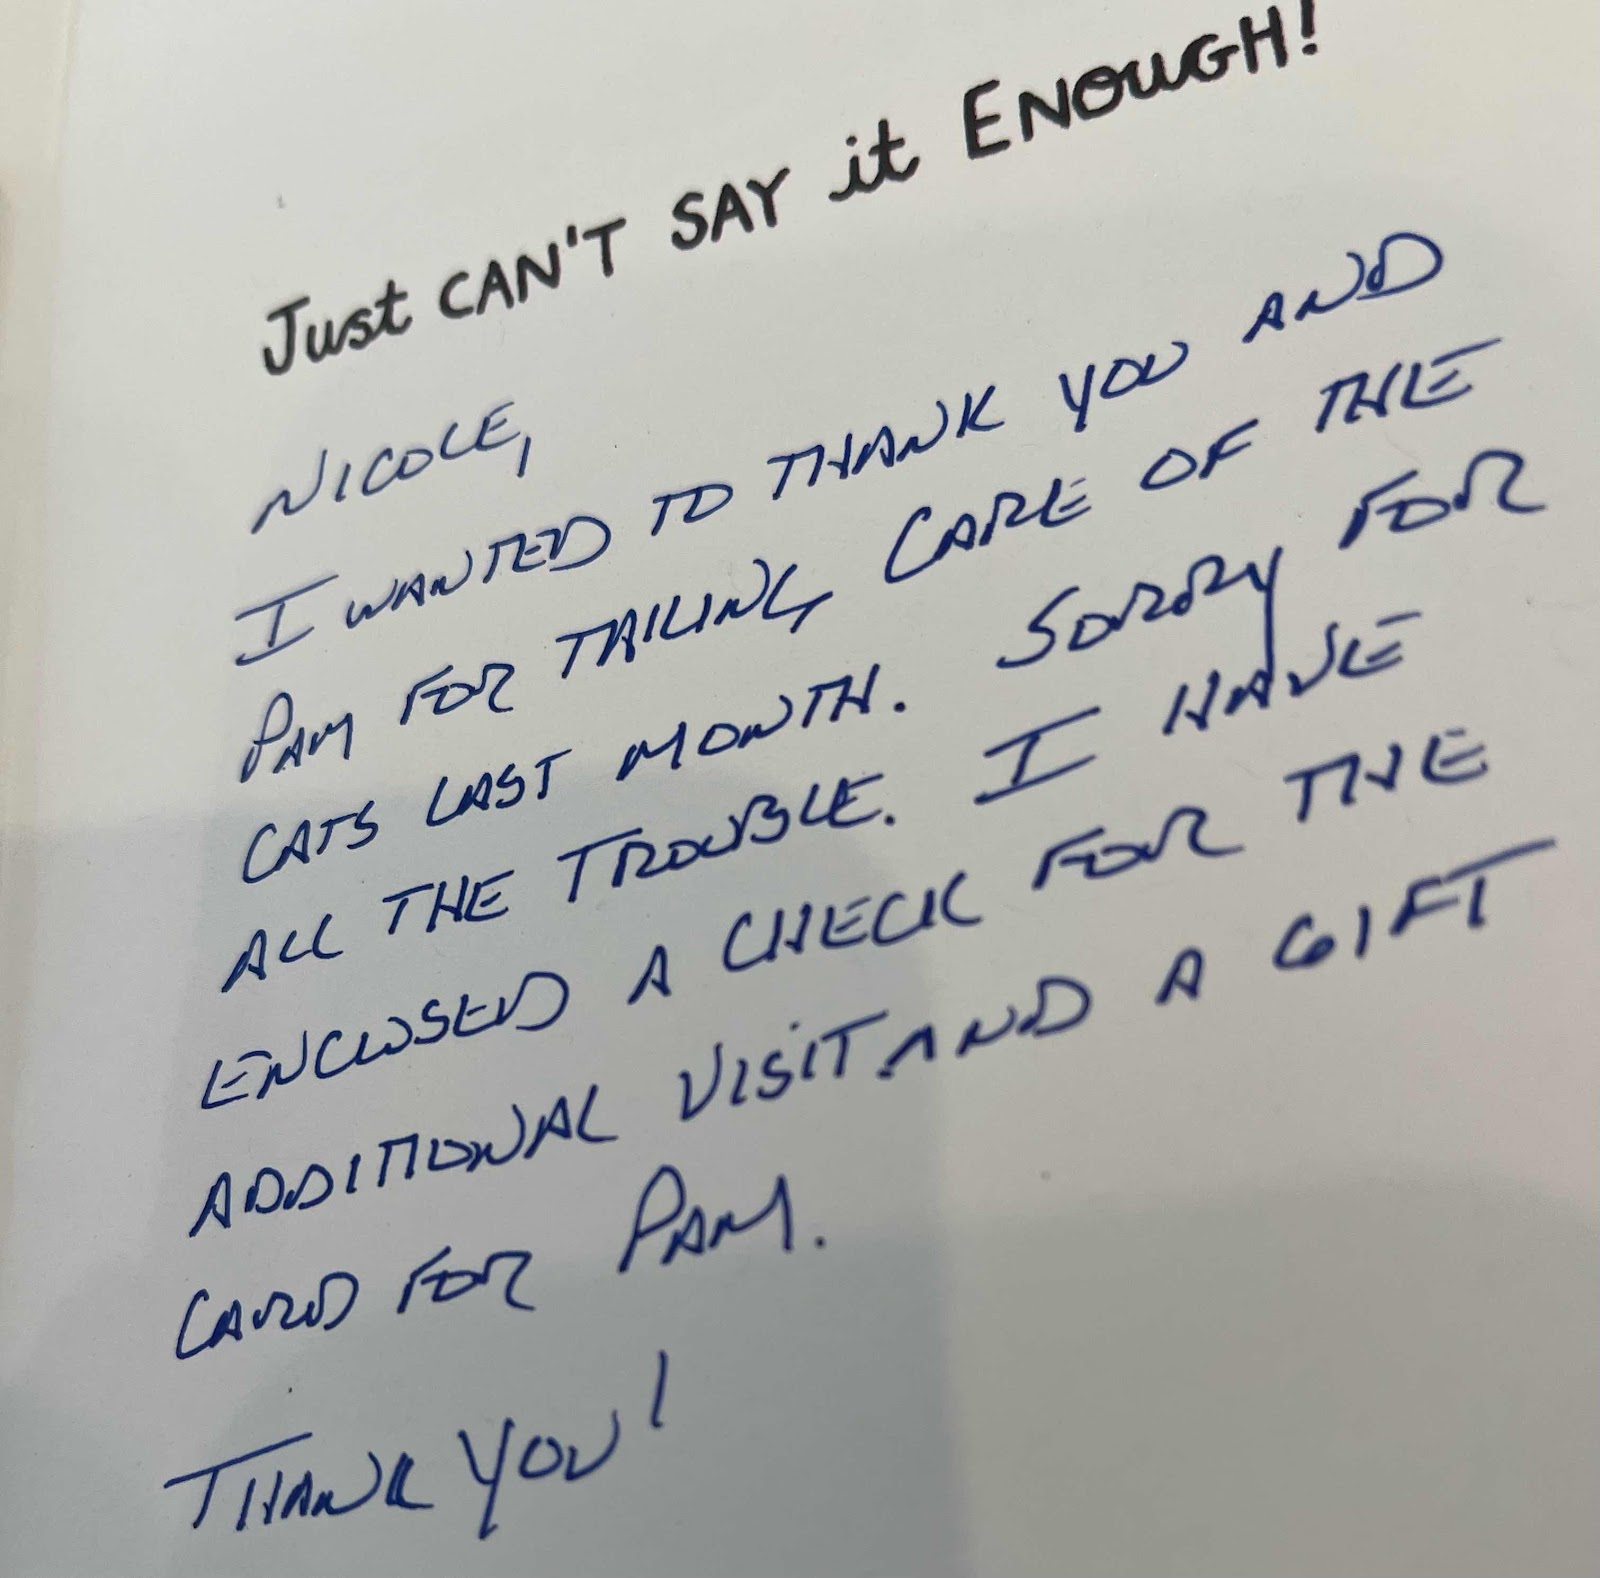 Just CAN'T SAY it ENOUGH!
NICOLE,
I WANTED TO THANK YOU AND
PAM FOR TAKING CARE OF THE
CATS LAST MONTH. SORRY FOR
ALL THE TROUBLE. I HAVE
ENCLOSED A CHECK FOR THE
ADDITIONAL VISIT AND A GIFT
CARD FOR PAM.
THANK YOU!